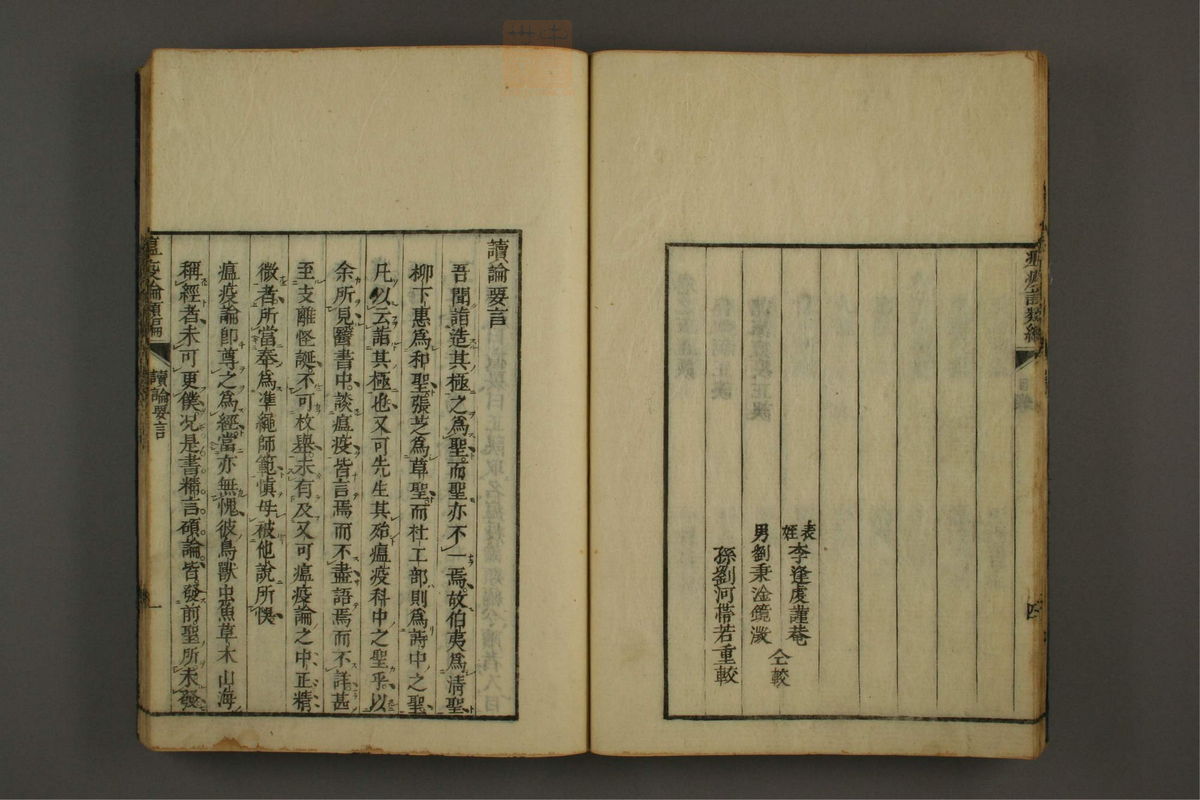 表姪李逢虔謹菴
男劉秉淦鏡濙
仝較
孫劉河帶若重較
目錄
四
讀論要言
吾聞詣造其極之爲聖而聖亦不一焉故伯夷爲淸聖
柳下惠爲和聖張芝爲草聖而杜工部則爲詩中之聖
凡以云詣其極也又可先生其殆瘟疫科中之聖乎以
余所見醫書中談瘟疫皆言焉而不盡語焉而不詳甚
至支離怪誕不可枚舉未有及又可瘟疫論之中正精
微者所當奉爲準繩師範愼毋被他說所惧
瘟疫論卽尊之爲經當亦無愧彼鳥獸虫魚草木山海
稱經者未可更僕况是書精言碩論皆發前聖所未發
瘟疫論類編
讀論要言
一